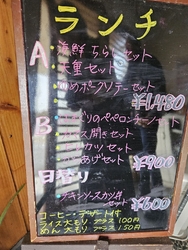 ランチ
A:海鮮ちらしセット
・天重セット
・ポークソテーセット
¥1,480
B
のペペロンチーノセット
開きセット
カツセット
あげセット
¥900
日替り
・チキンソースカツ丼
セット ¥600
コーヒー・デザート付
ライス大もり プラス100円
めん大もり プラス150円